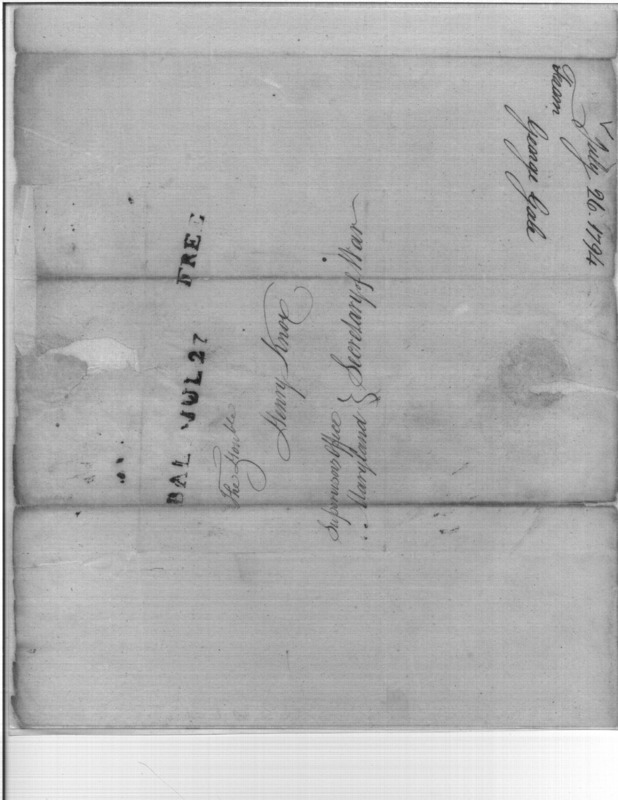 BAL JUL 27 FREE
The Honble
Henry Knox
Supervisors Office
Maryland } Secretary of War
From
George Gale
July 26. 1794